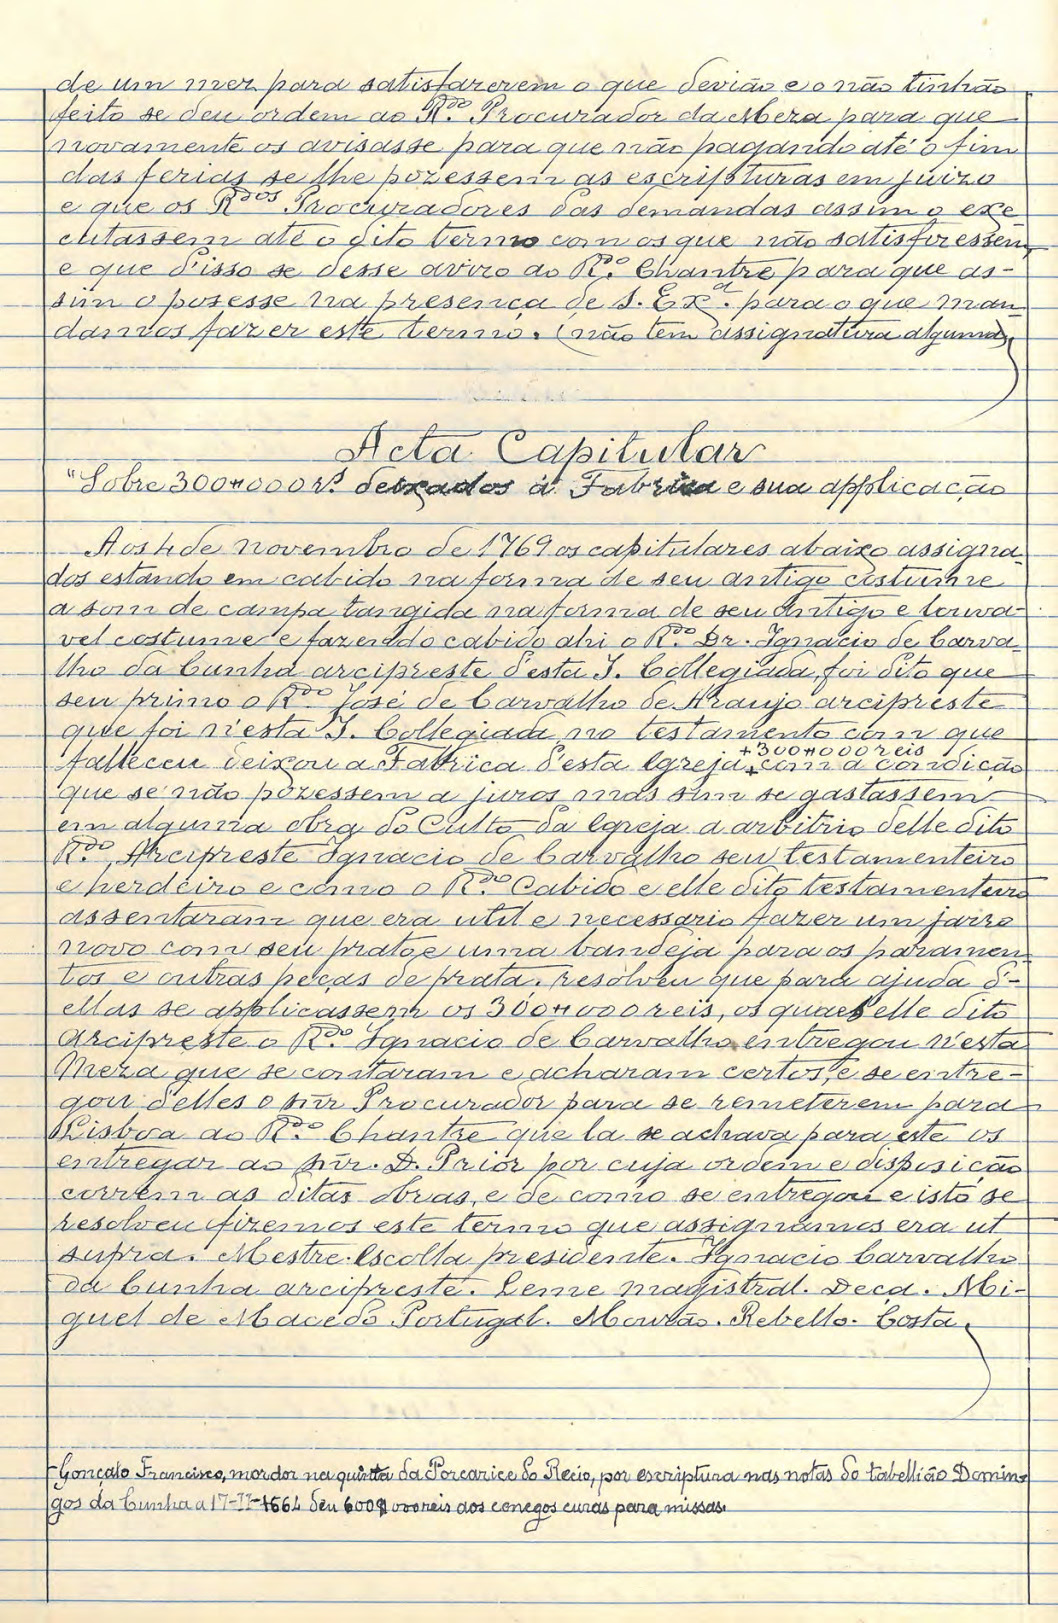 de um mez para satisfazerem o que devião e o não tinhão
feito se deu ordem ao R.do Procurador da Meza para que
novamente os avisasse para que não pagando até o fim
das ferias se lhe pozessem as escripturas em juizo
e que os R.dos Procuradores das demandas assim o exe
cutassem até o dito termo com os que não satisfizessem,
e que d'isso se desse avizo ao R.do Chantre para que as-
sim o pozesse na presença de S. Ex.a para o que man
damos fazer este termo. (não tem assignatura alguma)
Acta Capitular
"Sobre 300#000 r.s deixados á Fabrica e sua applicação
Aos 4 de novembro de 1769 os capitulares abaixo assigna-
dos estando em cabido na forma de seu antigo costume
a som de campa tangida na forma de seu antigo e louva-
vel costume e fazendo cabido ahi o R.do Dr. Ignacio de Carva-
lho da Cunha arcipreste d'esta I. Collegiada, foi dito que
seu primo o R.do José de Carvalho de Araujo arcipreste
que foi n'esta I. Collegiada no testamento com que
+300#000 reis
falleceu deixou a Fabrica d'esta Igreja + com a condição
que se não pozessem a juros mas sim se gastassem
em alguma obra do Culto da Igreja a arbitrio delle dito
R.do Arcipreste Ignacio de Carvalho seu testamenteiro
e herdeiro e como o R.do Cabido e elle dito testamenteiro
assentaram que era util e necessario fazer um jarro
novo com seu prato e uma bandeja para os paramen
tos e outras peças de prata. resolveu que para ajuda d'-
ellas se applicassem os 300#000 reis, os quaes elle dito
Arcipreste o R.do Ignacio de Carvalho entregou n'esta
Meza que se contaram e acharam certos, e se entre-
gou d'elles o snr Procurador para se remeterem para
Lisboa ao R.do Chantre que la se achava para este os
entregar ao snr. D. Prior por cuja ordem e disposição
correm as ditas obras, e de como se entregou e isto se
resolveu fizemos este termo que assignamos era ut
supra. Mestre-Escolla presidente. Ignacio Carvalho
da Cunha arcipreste. Leme magistral. Deca. Mi-
guel de Macedo Portugal. Mourão. Rebello. Costa.
-Gonçalo Francisco, mordor na quinta da Porcarice do Recio, por escriptura nas notas do tabellião Domin-
gos da Cunha a 17-II-1664 deu 600$000 reis aos conegos curas para missas.